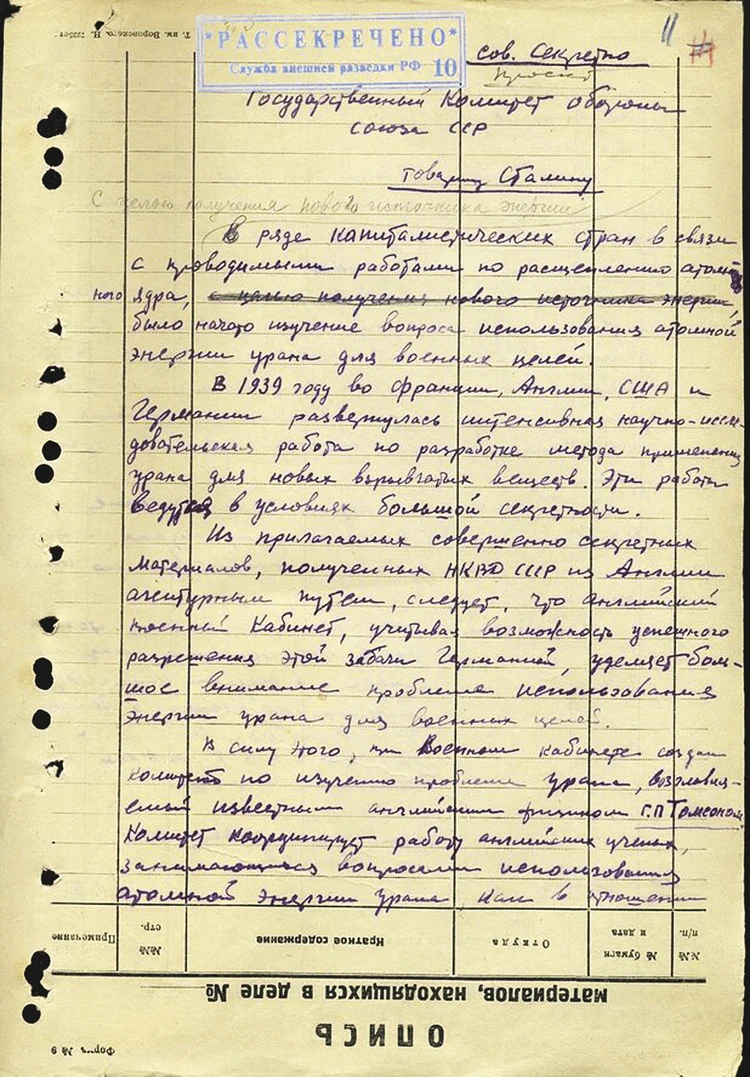 Т. им. Воровского. Н.
*РАССЕКРЕЧЕНО*
Служба внешней разведки РФ 10
11
сов. Секретно
проект
Государственный Комитет обороны
союза ССР
товарищу Сталину
С целью получения нового источника энергии
В ряде капиталистических стран в связи
с проводимыми работами по расщеплению атом
ного ядра, с целью получения нового источника энергии,
было начато изучение вопроса использования атомной
энергии урана для военных целей.
В 1939 году во Франции, Англии, США и
Германии развернулась интенсивная научно-иссле-
довательская работа по разработке метода применения
урана для новых взрывчатых веществ. Эти работы
ведутся в условиях большой секретности.
Из прилагаемых совершенно секретных
материалов, полученных НКВД СССР из Англии
агентурным путем, следует, что английский
военный Кабинет, учитывая возможность успешного
разрешения этой задачи Германией, уделяет боль-
шое внимание проблеме использования
энергии урана для военных целей.
В силу этого, при Военном кабинете создан
комитет по изучению проблемы урана, возглавля-
емый известным английским физиком Г.П Томсоном.
Комитет координирует работу английских ученых,
занимающихся вопросами использования
атомной энергии урана, как в отношении
Примечание
№№ стр.
Краткое содержание
Откуда
№ бумаги и дата
№№ п/п.
материалов, находящихся в деле №
ОПИСЬ
Форма № 9